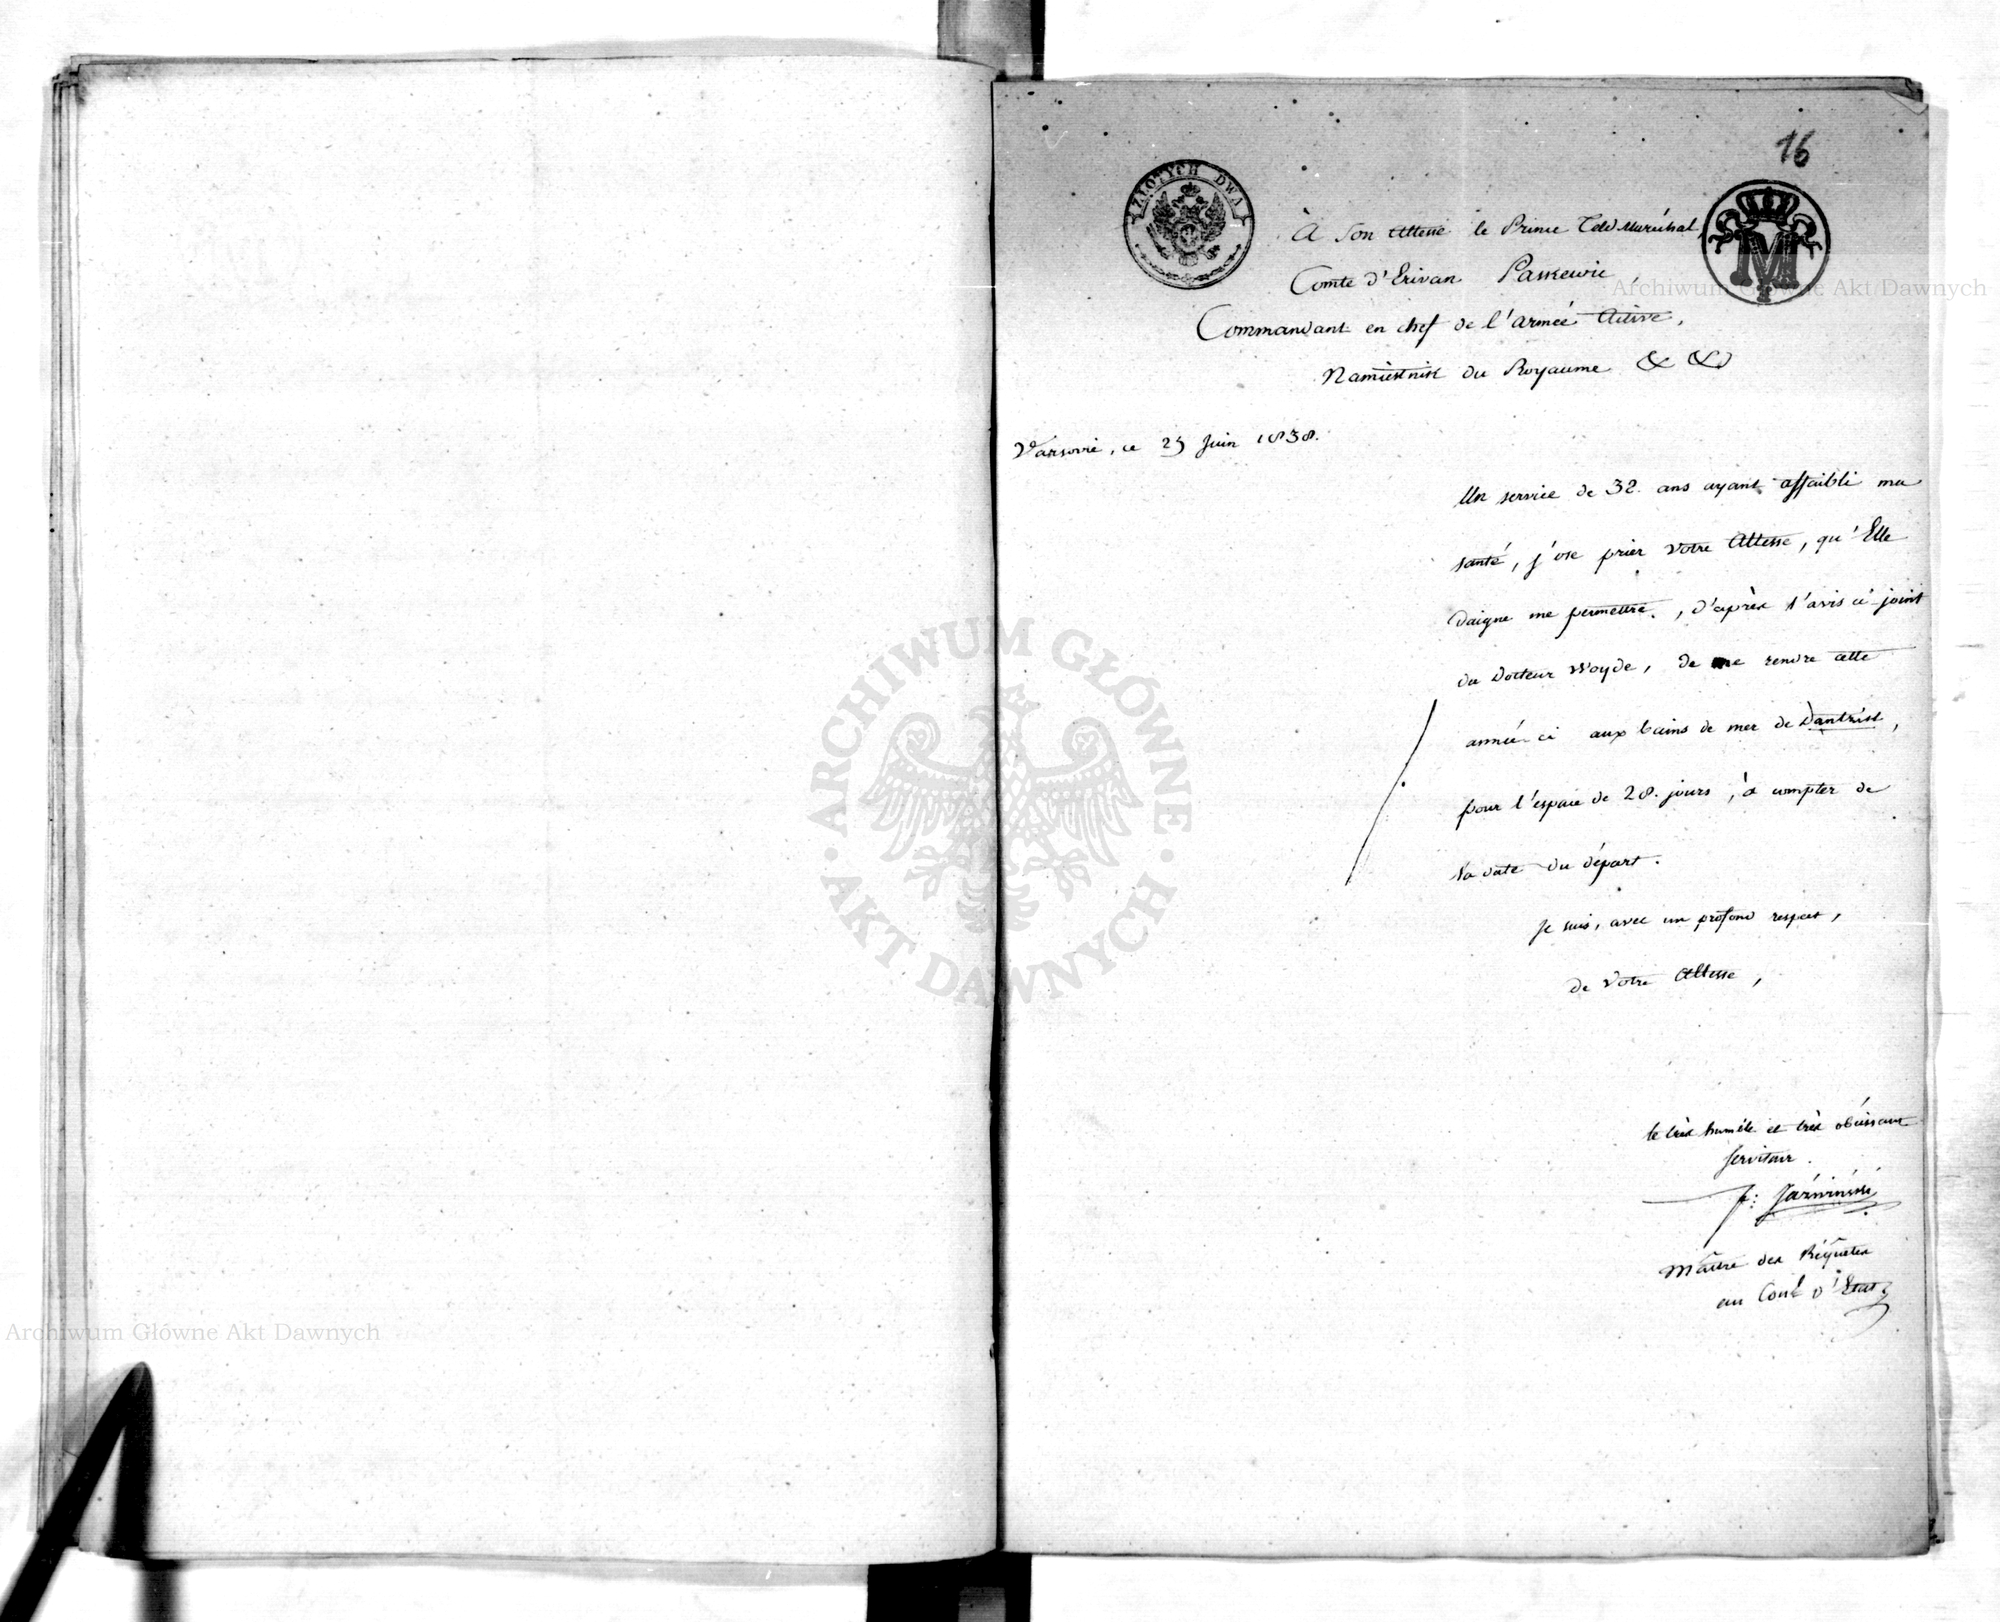 16
ZŁOTYCH DWA
M
À Son Altesse le Prince Feld Maréchal,
Comte d'Erivan Paskewic,
Commandant en chef de l'armée Active,
Namiestnik du Royaume & &
Varsovie, ce 25 Juin 1838.
Un service de 32. ans ayant affaibli ma
santé, j'ose prier Votre Altesse, qu'Elle
daigne me permettre, d'après l'avis ci-joint
du Docteur Woyde, de me rendre cette
année-ci aux bains de mer de Dantzist,
pour l'espace de 28. jours, à compter de
la date du départ.
Je suis, avec un profond respect,
de Votre Altesse,
le très humble et très obéissant
serviteur.
Maître des Réquêtes
au Conl d'Etat
ARCHIWUM GŁÓWNE
AKT DAWNYCH
Archiwum Główne Akt Dawnych
Archiwum Główne Akt Dawnych